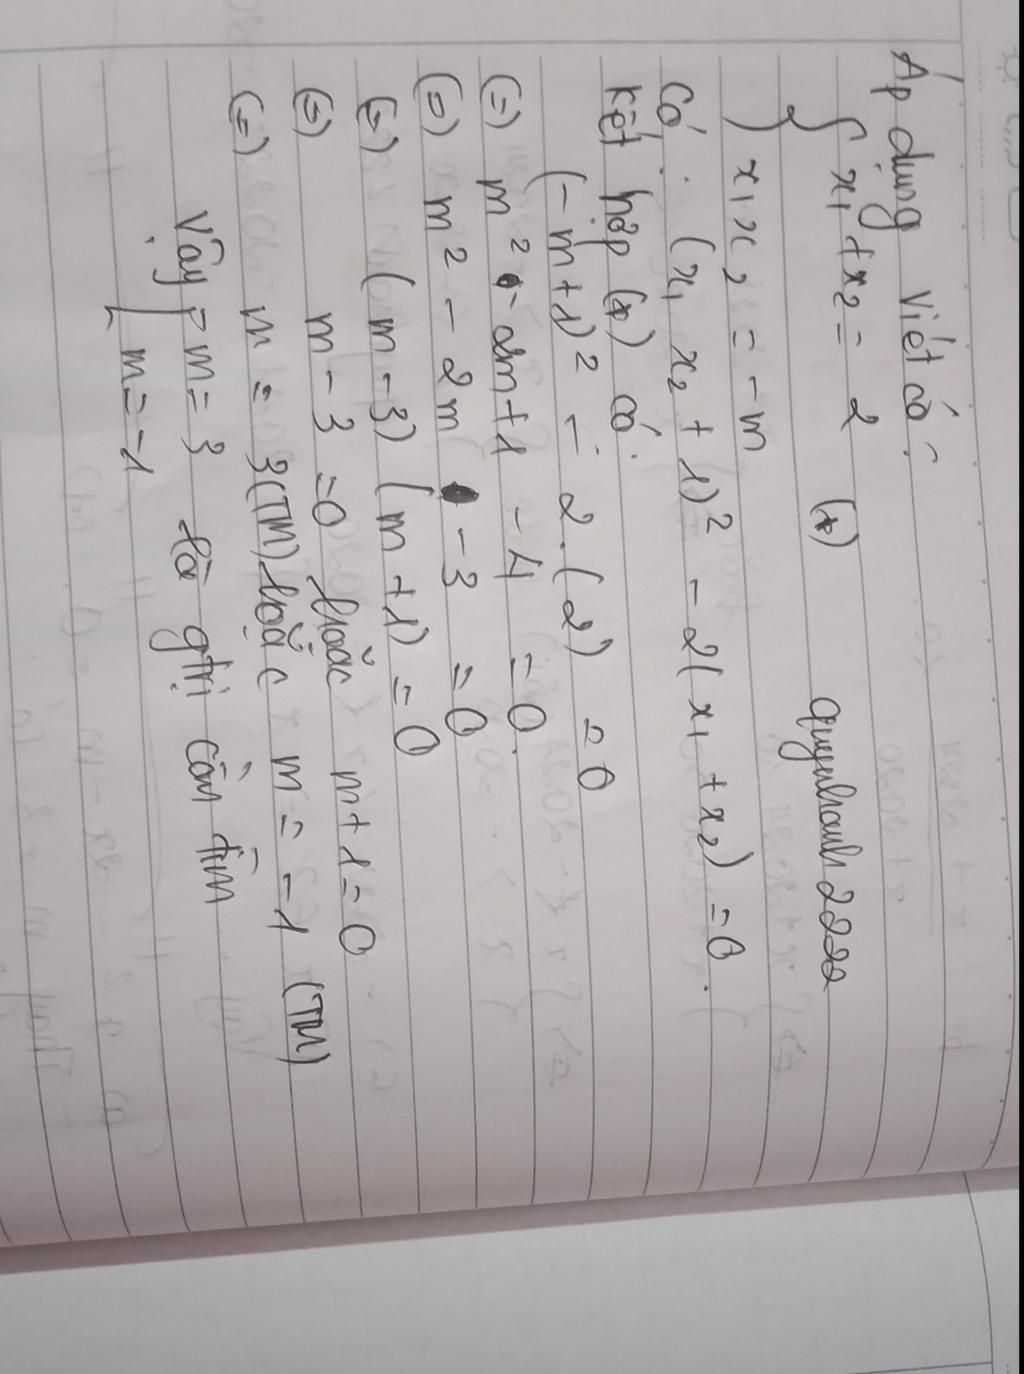 Áp dụng Viét có:
{ x₁ + x₂ = 2 (*) quynhanh2222
x₁x₂ = -m
Có: (x₁x₂ + 1)² - 2(x₁ + x₂) = 0.
Kết hợp (*) có:
(-m+1)² - 2.(2) = 0
(=) m² - 2m+1 - 4 = 0.
(=) m² - 2m - 3 = 0
(=) (m-3)(m+1) = 0
(=) m-3 = 0 hoặc m+1=0
(=) m = 3(TM) hoặc m = -1 (TM)
Vậy [ m = 3 là gtrị cần tìm
m = -1